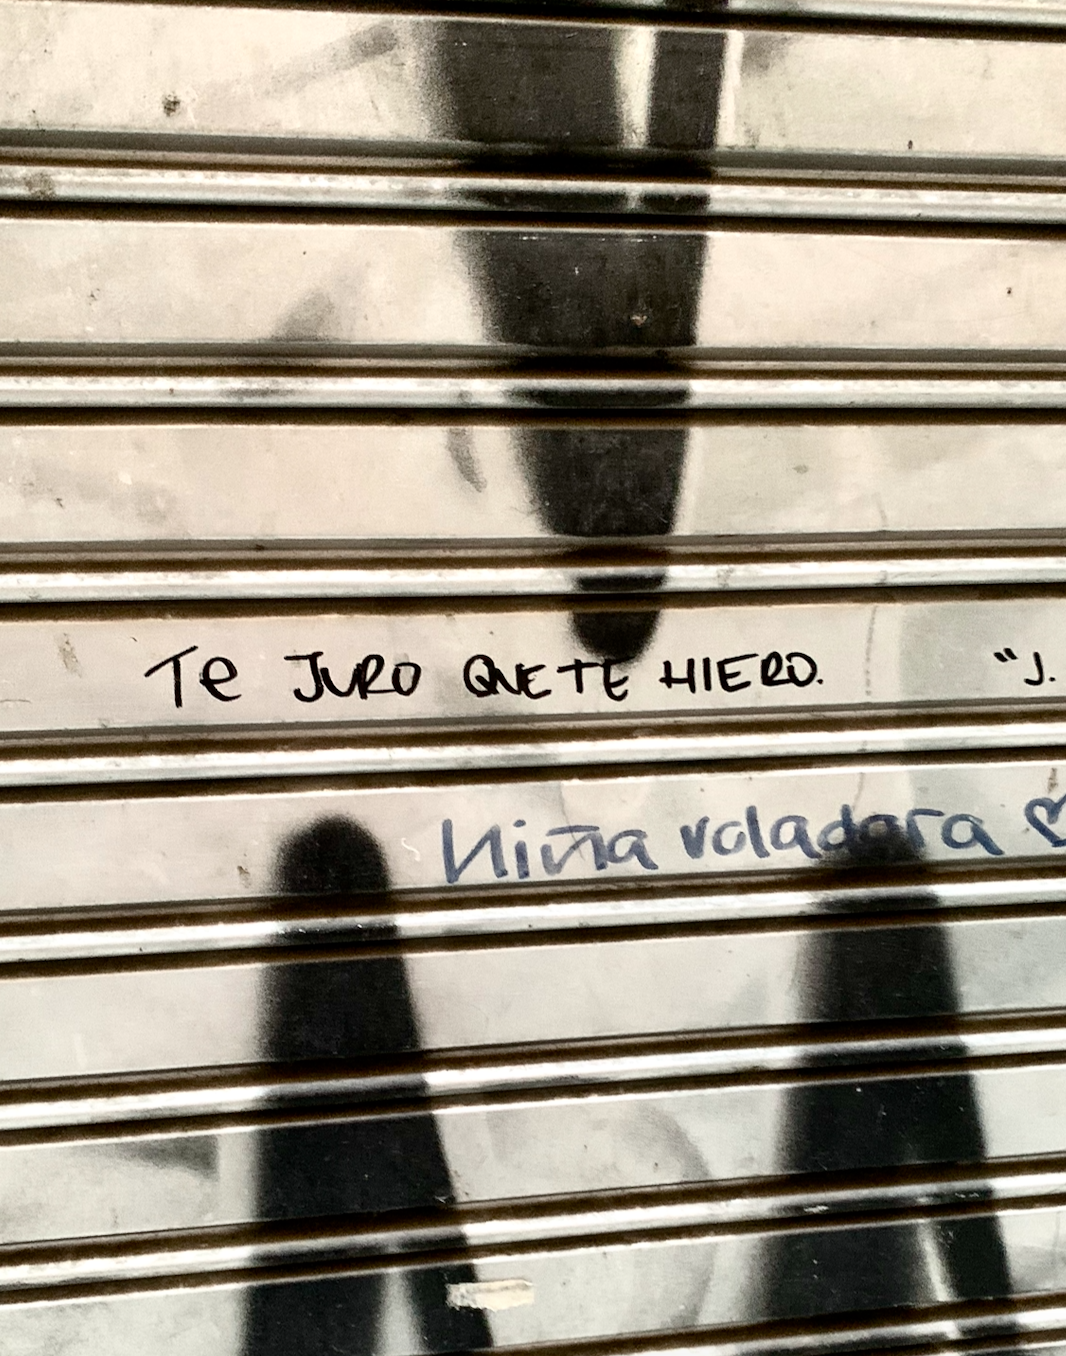 Te JURO QUE TE HIERO. "J.
Niña voladora ♡